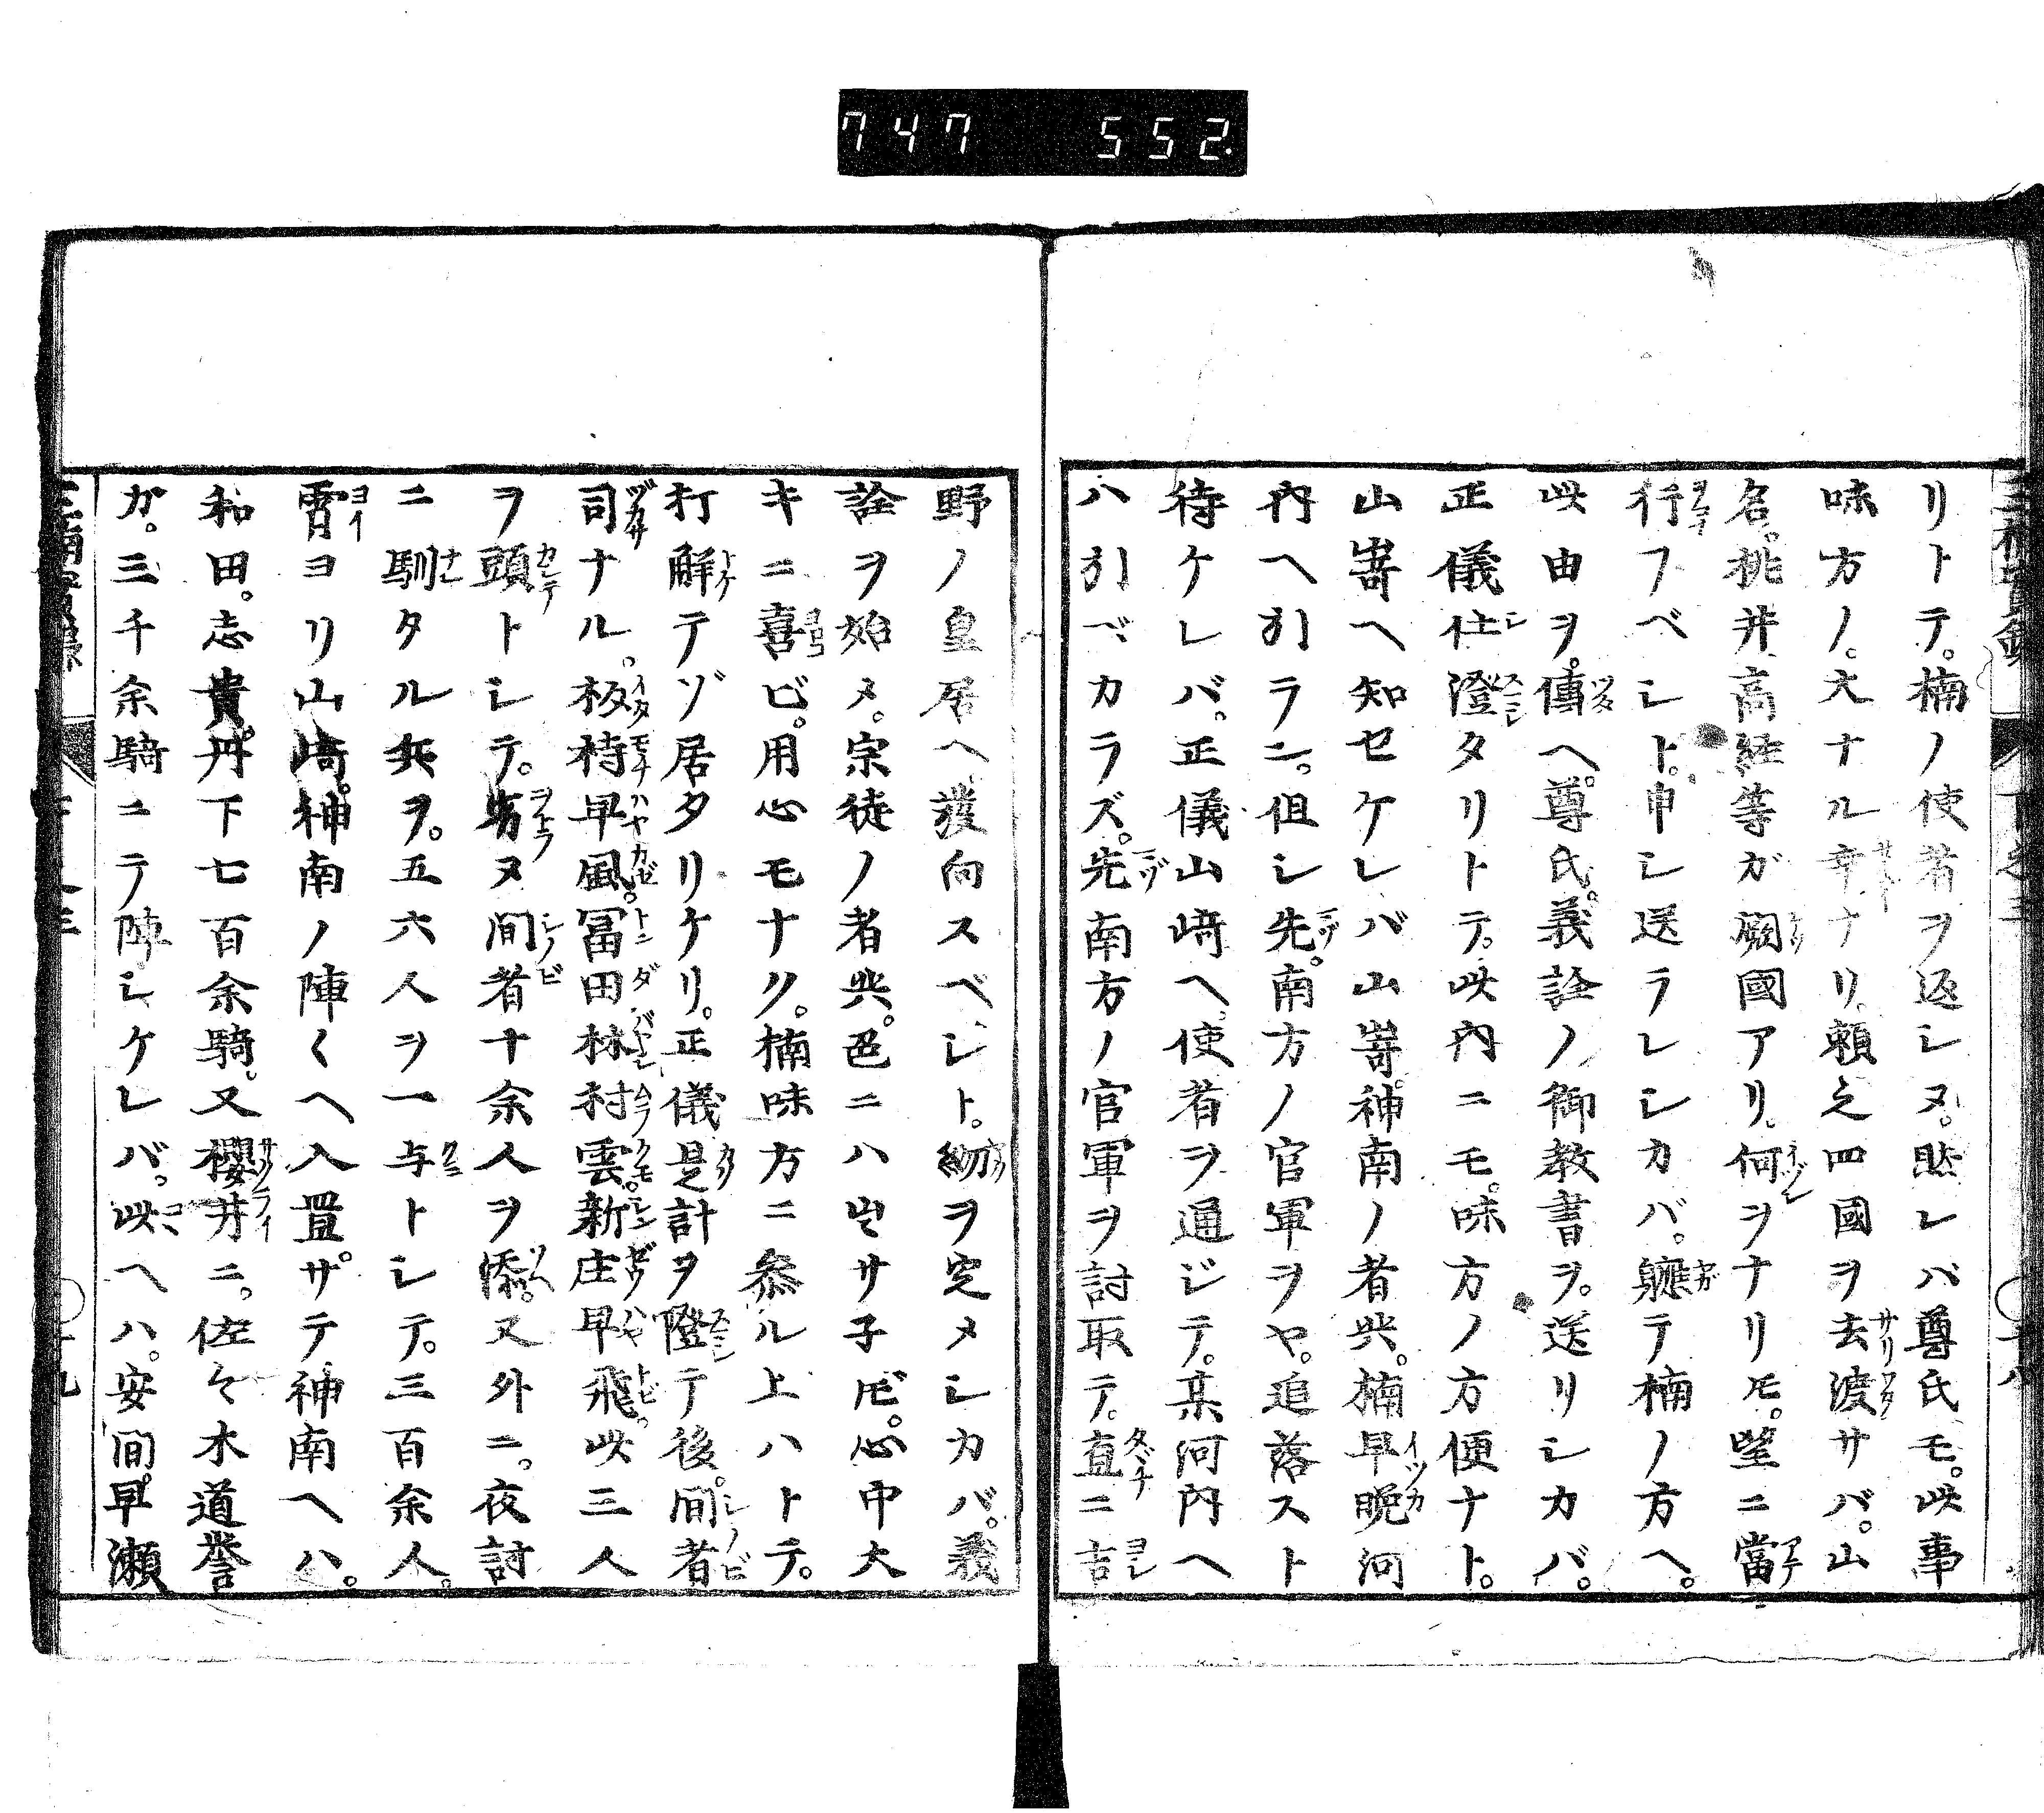 747 552
リトテ。楠ノ使者ヲ返シヌ。然レバ尊氏モ。此事
味方ノ。大ナル幸ナリ。頼之四國ヲ去渡サバ。山
名。桃井高経等ガ闕國アリ。何ヲナリトモ。望ニ當
行フベシト。申シ送ラレシカバ。軈テ楠ノ方ヘ。
此由ヲ。傳ヘ。尊氏。義詮ノ御教書ヲ。送リシカバ。
正儀仕澄タリトテ。此内ニモ。味方ノ方便ナト。
山嵜ヘ知セケレバ山嵜。神南ノ者共。楠早晩河
内ヘ引ラン。但シ先。南方ノ官軍ヲヤ。追落スト
待ケレバ。正儀山﨑ヘ。使者ヲ通ジテ。某河内ヘ
ハ引ベカラズ。先南方ノ官軍ヲ討取テ。直ニ吉
野ノ皇居ヘ發向スベシト。約ヲ定メシカバ。義
詮ヲ始メ。宗徒ノ者共。色ニハ出サ子ドモ。心中大
キニ喜ビ。用心モナク。楠味方ニ参ル上ハトテ。
打解テゾ居タリケリ。正儀是計ヲ隥テ後。間者
司ナル。板持早風。冨田林村雲。新庄早飛。此三人
ヲ頭トシテ。劣ヌ間者十余人ヲ添。又外ニ。夜討
ニ馴タル兵ヲ。五六人ヲ一与トシテ。三百余人。
宵ヨリ山﨑。神南ノ陣〱ヘ入置。サテ神南ヘハ。
和田。志貴。丹下七百余騎。又櫻井ニ。佐々木道誉
ガ。三千余騎ニテ陣シケレバ。此ヘハ。安間。早瀬